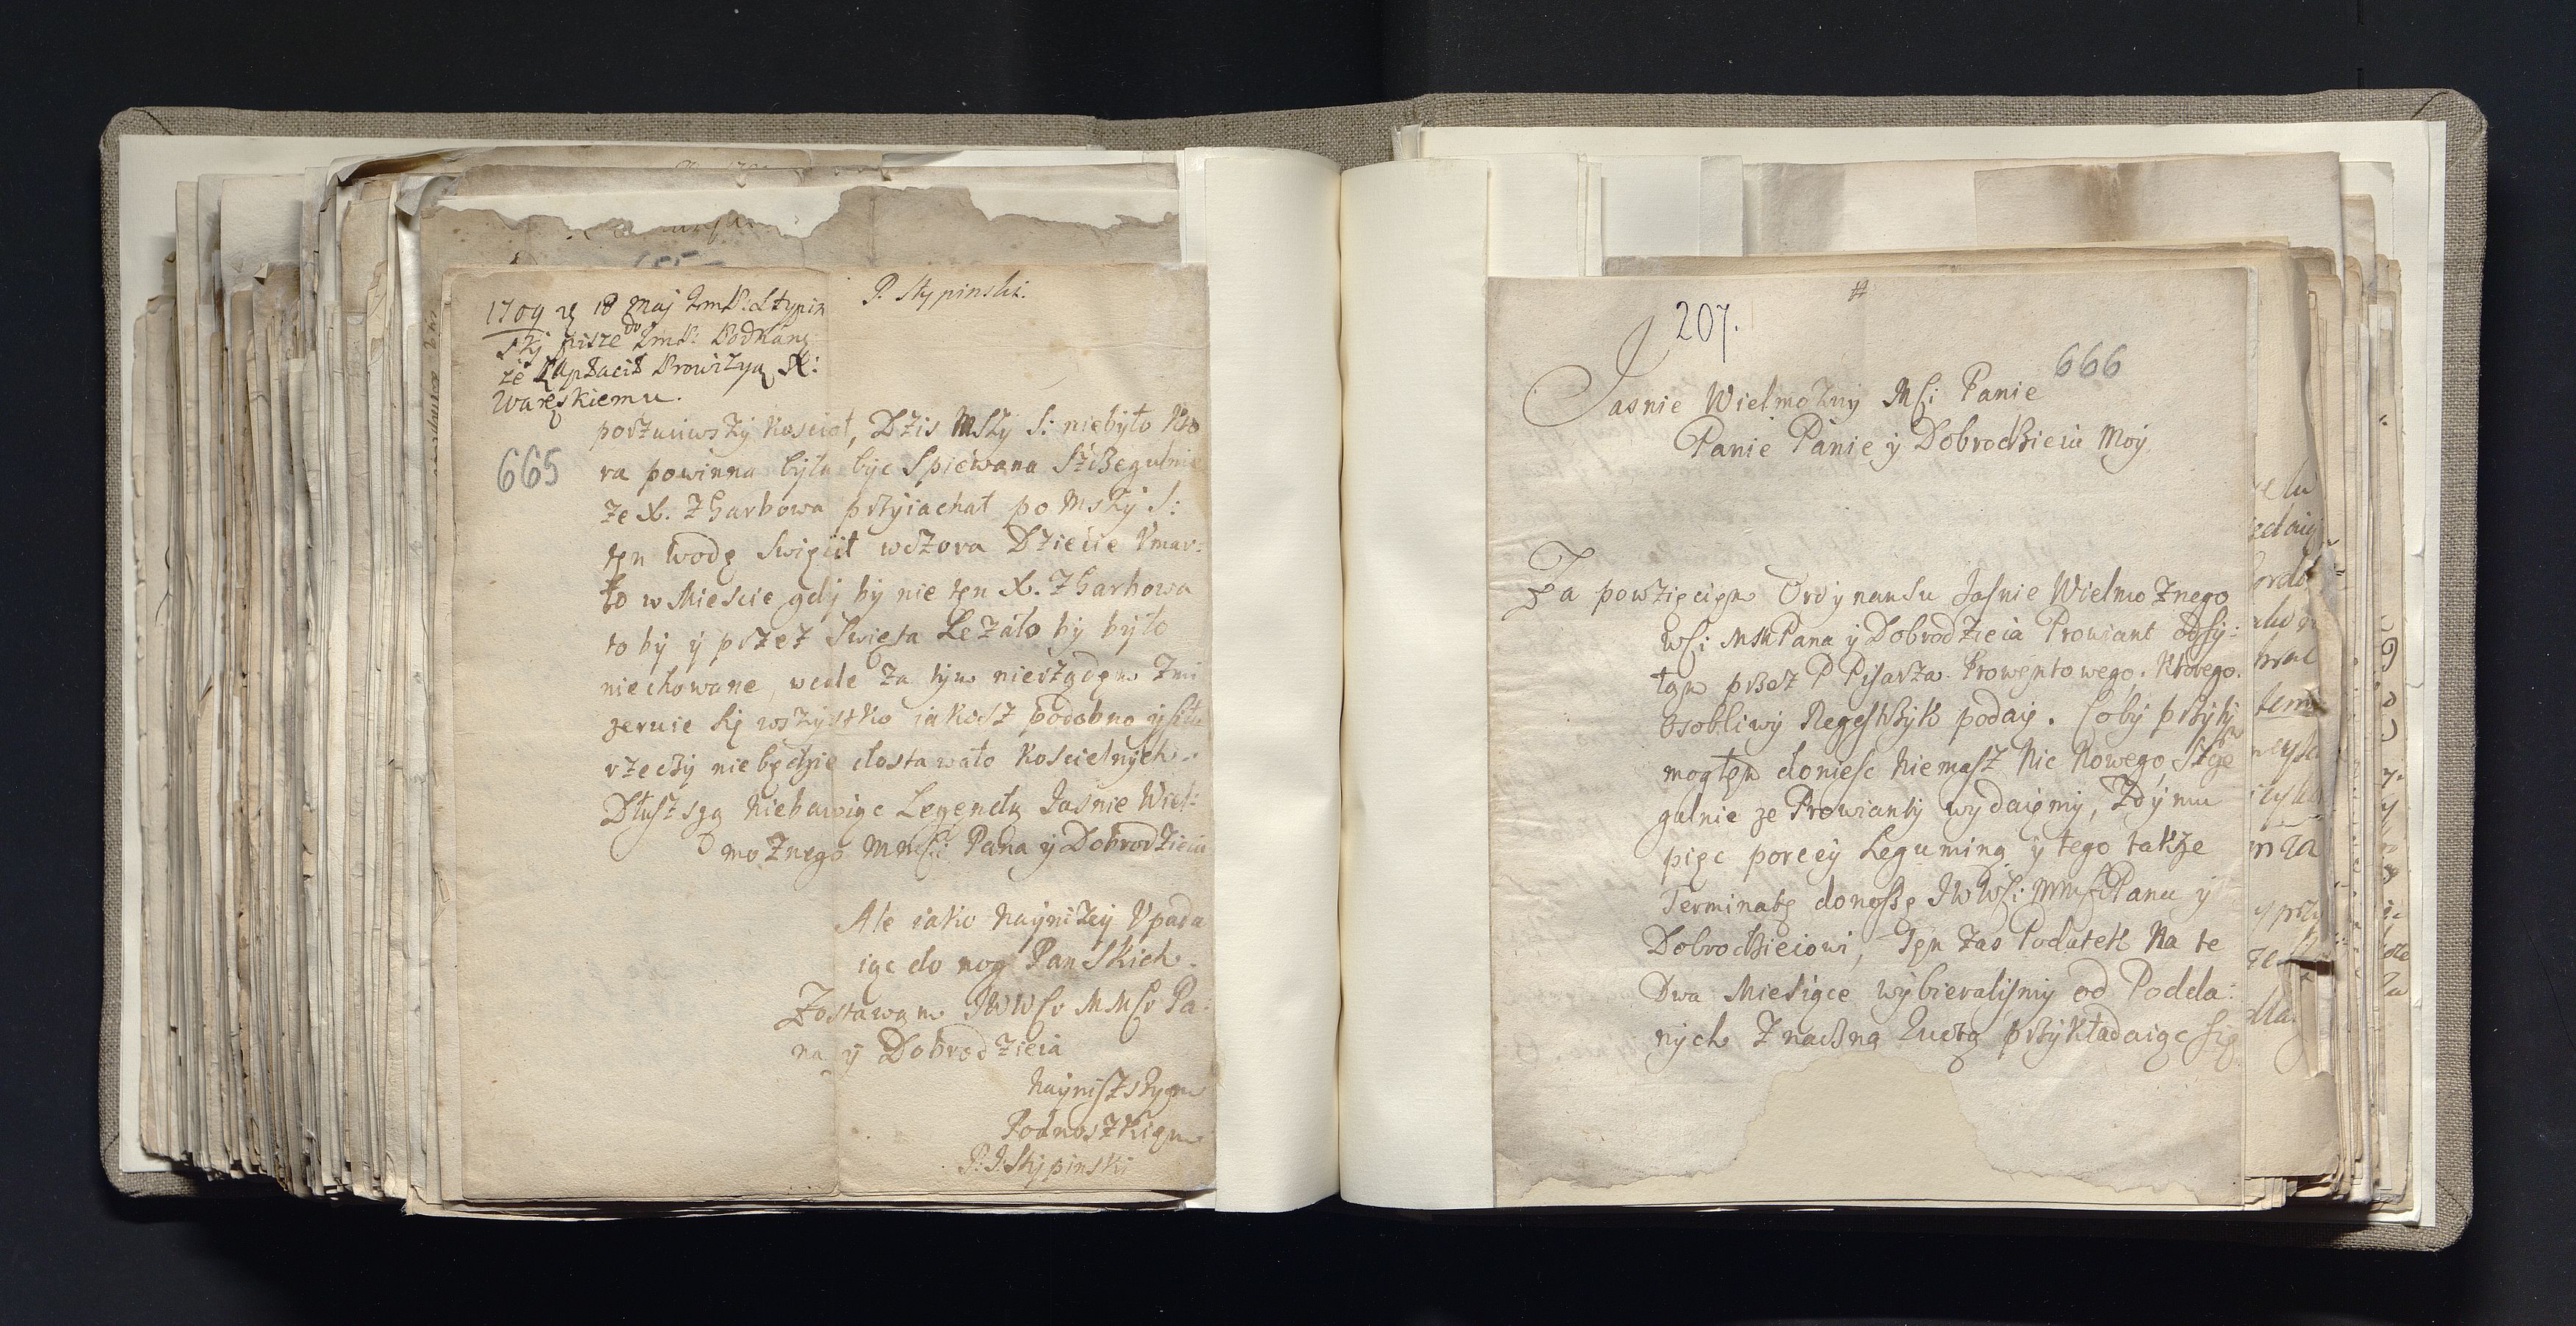 P. Stypinski.
1709 18 Maj ImP. Stypin
ski pisze do ImP: Podkanc
że zapłacił Prowizyą X:
Waręskiemu.
665
porzuciwszy koscioł, Dzis Mszy S: niebyło kto
ra powinna była byc Spiewana Szczegulnie
że X. z Garbowa przyiachał po Mszy S:
ten wodę Swięcił wczora Dziecie Vmar:
ło w Miescie gdy by nie ten X. z Garbowa
to by y przez Swięta Leżało by było
niechowane, wcale za tym nierządem Zmi
zeruie się wszystko iakosz podobno
rzeczy niebędzie dostawało koscielnych.
Dłuszszą Niebawiąc Legendą Jasnie Wiel:
możnego MMSci Pana y Dobrodzieia
Ale iako Nayniżey Vpada
iąc do nog Panskich.
Zostawam JWWSci MMSci Pa:
na y Dobrodzieia
Nayniszszym
Podnoszkiem
P: J: Stypinski
207.
666
Jasnie Wielmożny MSci Panie
Panie Panie y Dobrodzieiu Moy
Za powzięciem Ordynansu Jasnie Wielmożnego
WSci MMPana y Dobrodzieia Prowiant odsy:
łam przez P Pisarza Prowentowego. Ktorego.
Osobliwy Regestrzyk podaię. Coby przytym
mogłem doniesc Niemasz Nic Nowego, Szcze
gulnie ze Prowianty wydaiemy, Zdymu
pięc porcey Leguminą y tego także
Terminatę donoszę JWWSci MMSciPanu y
Dobrodzieiowi, Ten zas Podatek Na te
Dwa Miesiące wybieralismy od Podda:
nych Znaczną przykładaiąc się